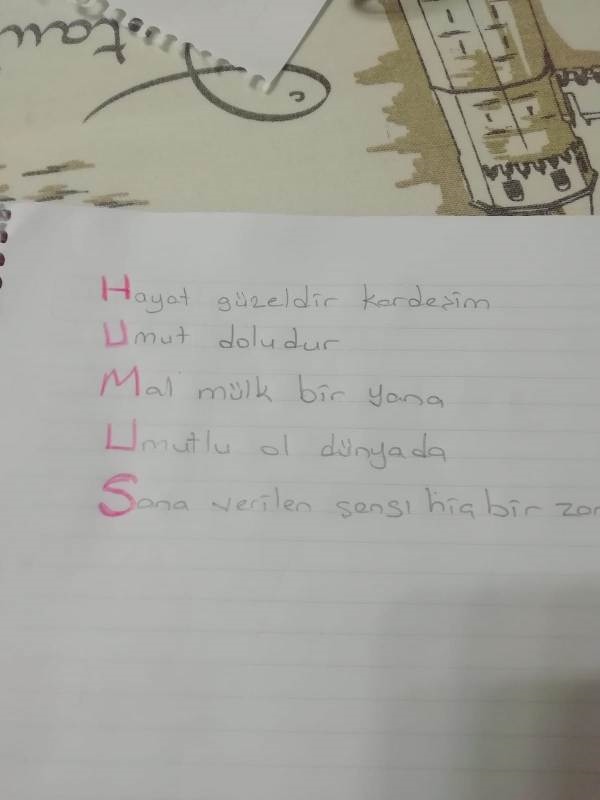 Hayat güzeldir kardeşim
Umut doludur
Mal mülk bir yana
Umutlu ol dünyada
Sana verilen şansı hiç bir zor